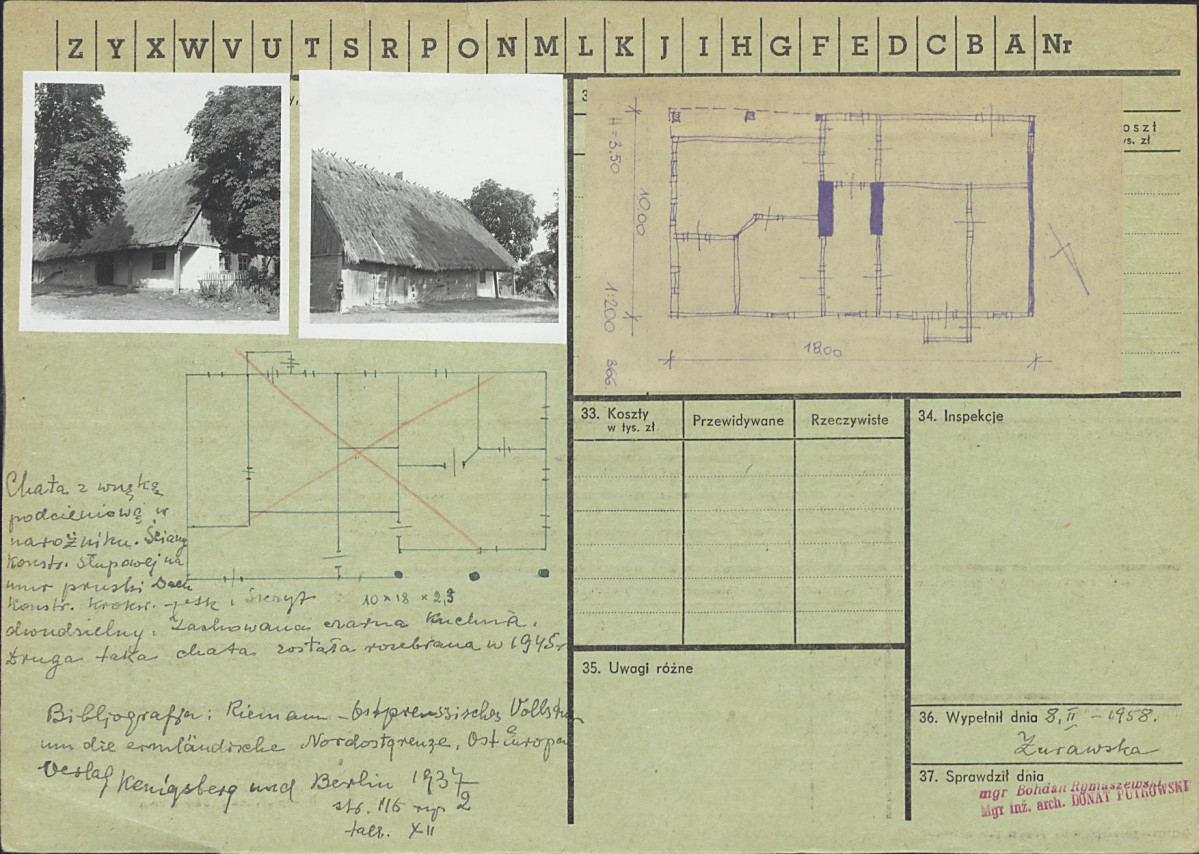 Z Y X W V U T S R P O N M L K J I H G F E D C B A Nr
H = 3,50
10,00
1:200
866.
18,00
oszt
ys. zł
Chata z wnęką
podcieniową w
narożniku. Ściany
konstr. słupowej na
mur pruski Dach
konstr. krokw. - jętk. Szczyt
10 × 18 × 2,5
dwudzielny. Zachowana czarna kuchnia.
Druga taka chata została rozebrana w 1945 r
Bibljografja: Riemann - Ostpreussisches
um die ermländische Nordostgrenze. Ost Europa
Verlag Kenigsberg und Berlin 1937
str. 116 ryc. 2
tabl. XII
33. Koszty
w tys. zł
Przewidywane
Rzeczywiste
34. Inspekcje
35. Uwagi różne
36. Wypełnił dnia 8, II - 1958.
Żurawska
37. Sprawdził dnia
mgr Bohdan Rymaszewski
Mgr inż. arch. DONAT PUTKOWSKI